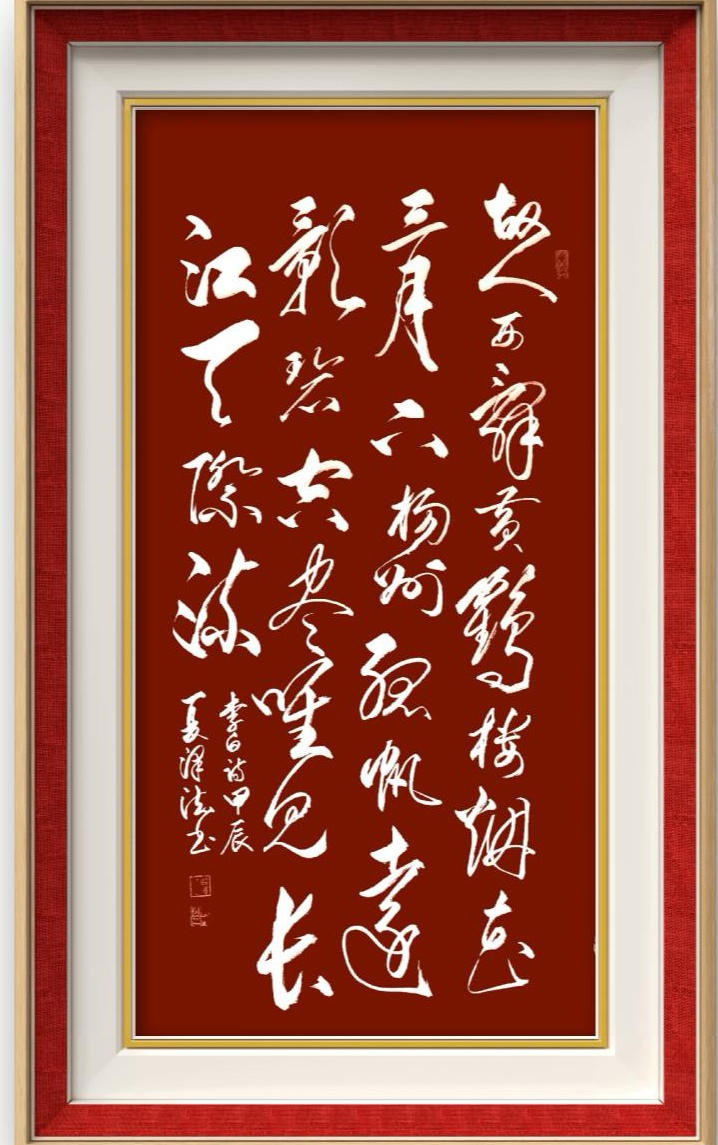 故人西辭黄鶴楼烟花
三月下揚州孤帆遠
影碧空尽唯見长
江天際流
李白诗甲辰
夏泽书